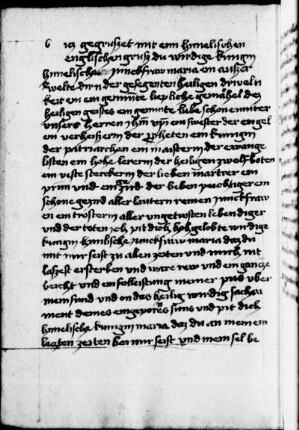 is gegrüsset mit eim himelischen
englischen grůß du wirdige kunigin
himelische junckfraw maria ein ausser
welte dirn der gesegenten heiligen drivalti
keit ein gemintte liepliche gemahel des
heiligen geistes ein geminte liebe schone muter
unsers herren ein swester der engel
ein verheisserin der propheten ein kunigin
der patriarchen ein maisterin der ewange
listen ein hohe lererin der heiligen zwelfboten
ein veste sterckerin der lieben martrer ein
und ein der lieben peichtiger ein
schone gezird aller lautern reinen junckfraw
en ein trosterin aller ungetrosten lebendiger
und der toten ich pit dich hohgelobte wirdige
kunigin himlische junckfraw maria das du
mit mir seist zu allen zeiten und mich nit
lassest ersterben und ware rew und ein gancze
beicht und ein folleistung meiner pus uber
mein sund und on das heilig wirdig sacra
ment deines suns und pit dich
himelische kunigin maria das du an meinem
leczten zeiten bei mir seist und mein sel be